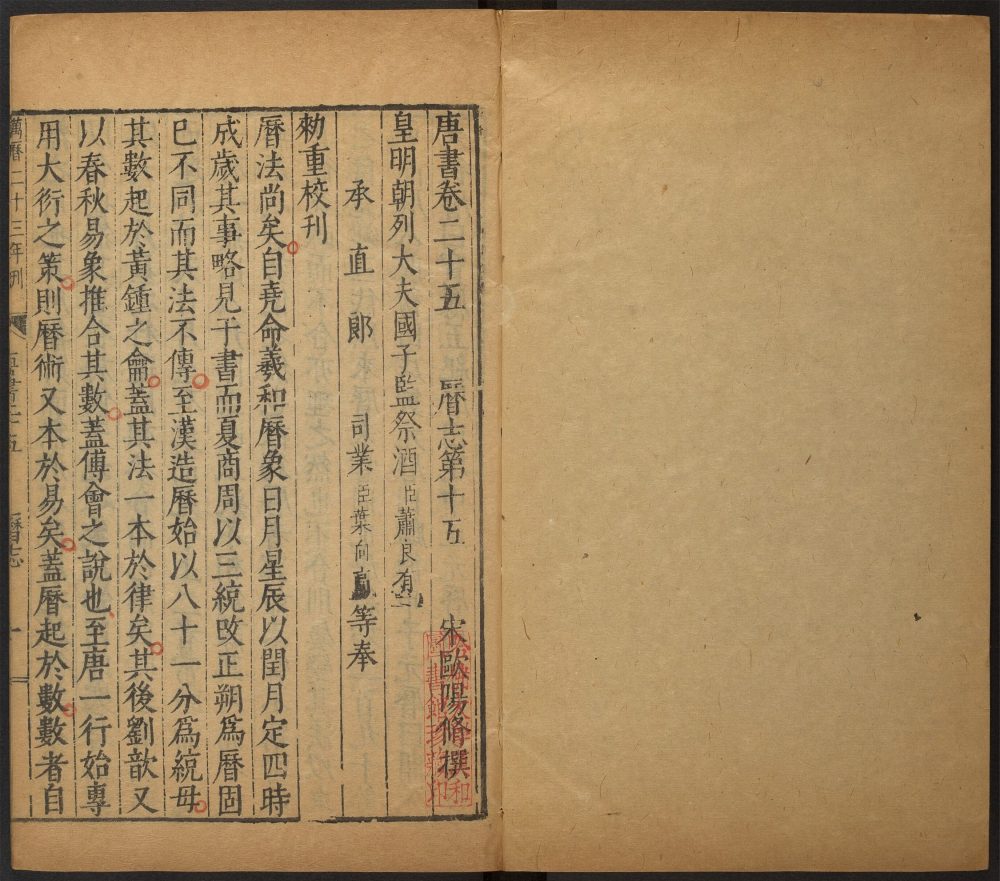 唐書卷二十五 曆志第十五 宋歐陽脩撰
皇明朝列大夫國子監祭酒臣蕭良有
承直郎 司業臣葉向高等奉
勑重校刊
曆法尚矣自堯命羲和曆象日月星辰以閏月定四時
成歲其事略見于書而夏商周以三統改正朔爲曆固
已不同而其法不傳至漢造曆始以八十一分爲統母
其數起於黃鍾之龠蓋其法一本於律矣其後劉歆又
以春秋易象推合其數蓋傅會之說也至唐一行始專
用大衍之策則曆術又本於易矣蓋曆起於數數者自
萬曆二十三年刊 唐書二十五 曆志 一